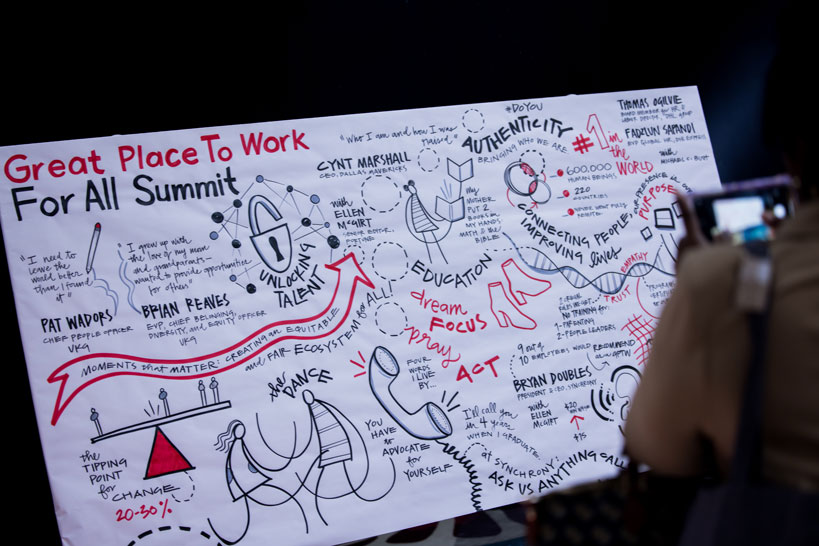 Great Place To Work
For All Summit
"I need to
leave the
world better
than I found
it"
PAT WADORS
CHIEF PEOPLE OFFICER
UKG
"I grew up with
the love of my mom
and grandparents—
wanted to provide opportunities
for others"
BRIAN REAVES
EVP, CHIEF BELONGING,
DIVERSITY, AND EQUITY OFFICER
UKG
UNLOCKING
TALENT
MOMENTS that MATTER: CREATING AN EQUITABLE
and FAIR ECOSYSTEM for ALL!
the
TIPPING
POINT
for
CHANGE
20-30%
"Who I am and how I was
raised"
CYNT MARSHALL
CEO, DALLAS MAVERICKS
with
ELLEN
McGIRT
SENIOR EDITOR,
FORTUNE
my
MOTHER
PUT 2
BOOKS in
MY HANDS
MATH & the
BIBLE
EDUCATION
dream
FOCUS
pray
ACT
FOUR
WORDS
I LIVE
BY...
the DANCE
YOU
HAVE
to
ADVOCATE
for
YOURSELF
I'll call you
in 4 years
WHEN I GRADUATE
#DOYOU
AUTHENTICITY
BRINGING WHO WE ARE
#1 in
the
WORLD
600,000
HUMAN BEINGS
220
COUNTRIES
NEVER WENT FULLY
REMOTE
THOMAS OGILVIE
FADZLUN SAPANDI
with
MICHAEL C. BUSH
PURPOSE
CONNECTING PEOPLE,
IMPROVING lives
EMPATHY
TRUST
1-PARENTING
2-PEOPLE LEADERS
9 out of
10 EMPLOYEES WOULD RECOMMEND
BRYAN DOUBLES
PRESIDENT & CEO, SYNCHRONY
with
ELLEN
McGIRT
$20
$15
at SYNCHRONY:
ASK US ANYTHING CALL